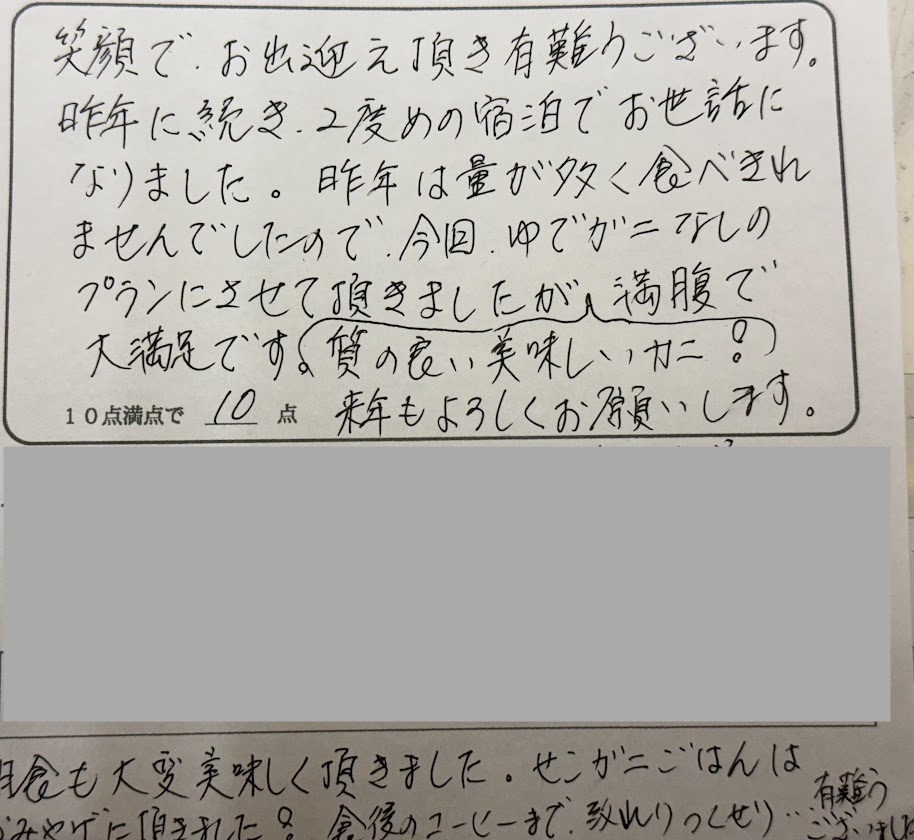 笑顔で、お出迎え頂き有難うございます。
昨年に続き、2度めの宿泊でお世話に
なりました。昨年は量が多く食べきれ
ませんでしたので、今回、ゆでガニなしの
プランにさせて頂きましたが、満腹で
大満足です。質の良い美味しいカニ!
10点満点で 10 点 来年もよろしくお願いします。
食も大変美味しく頂きました。せこガニごはんは
有難う
おみやげに頂きました! 食後のコーヒーまで、